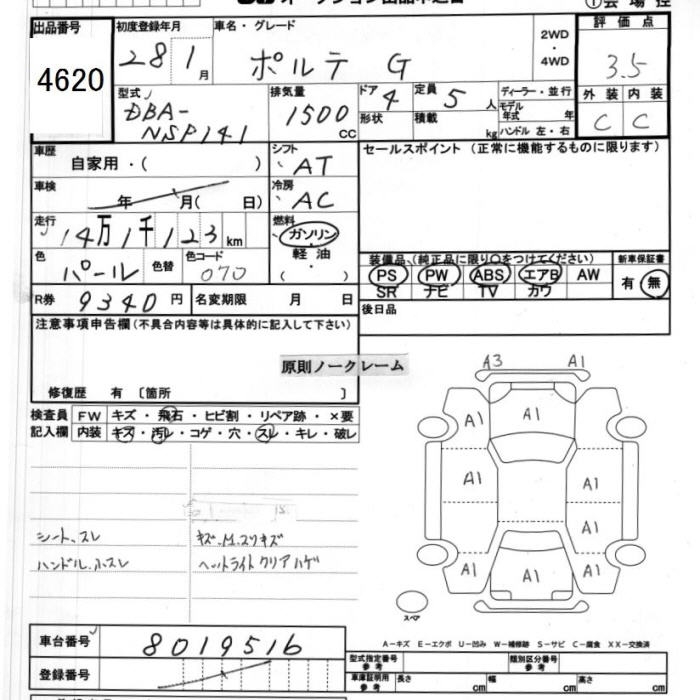 出品番号 初度登録年月 車名・グレード 2WD・4WD 評価点
4620 28 1月 ポルテ G 3.5
型式 排気量 ドア 定員 ディーラー・並行 外装 内装
DBA-NSP141 1500cc 4 5人 モデル年式 年 C C
形状 積載 kg ハンドル 左・右
車歴 シフト セールスポイント (正常に機能するものに限ります)
自家用・( ) AT
車検 冷房
年 月( 日) AC
走行 燃料
14万1千123km ガソリン・軽油・( )
色 色替 色コード 装備品、(純正品に限り○をつけてください) 新車保証書
パール 070 PS PW ABS エアB AW 有・無
SR ナビ TV カワ
R券 9340円 名変期限 月 日 後日品
注意事項申告欄(不具合内容等は具体的に記入して下さい)
原則ノークレーム
修復歴 有 〔箇所 〕
検査員 FW キズ・飛石・ヒビ割・リペア跡・×要
記入欄 内装 キズ・汚レ・コゲ・穴・スレ・キレ・破レ
シート、スレ キズ、M、スリキズ
ハンドル、スレ ヘットライトクリアハゲ
A3 A1
A1 A1 A1
A1 A1
A1
A1 A1 A1
スペア
A-キズ E-エクボ U-凹み W-補修跡 S-サビ C-腐食 XX-交換済
車台番号 8019516
登録番号
型式指定番号参考 類別区分番号参考
車庫証明用参考 長さ cm 幅 cm 高さ cm